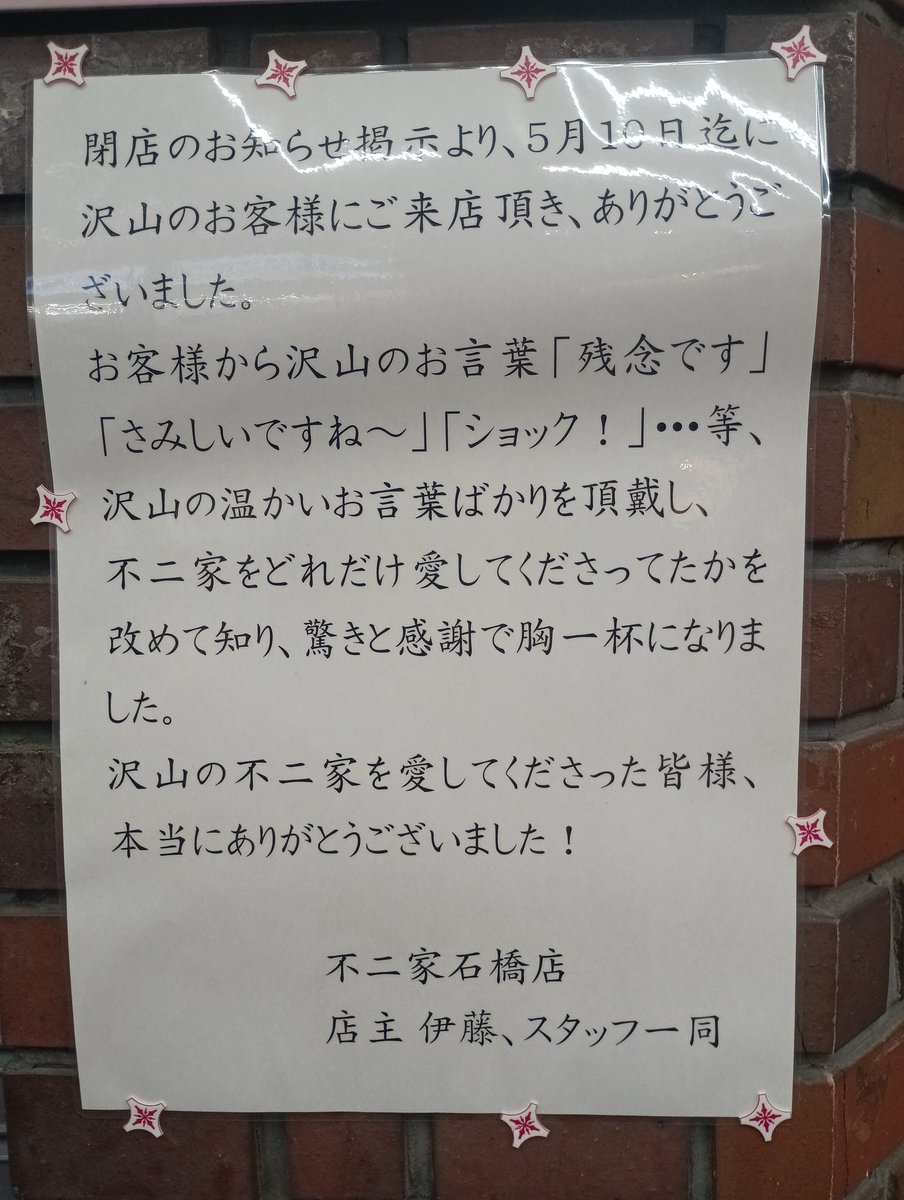 閉店のお知らせ掲示より、5月10日迄に
沢山のお客様にご来店頂き、ありがとうご
ざいました。
お客様から沢山のお言葉「残念です」
「さみしいですね～」「ショック！」…等、
沢山の温かいお言葉ばかりを頂戴し、
不二家をどれだけ愛してくださってたかを
改めて知り、驚きと感謝で胸一杯になりま
した。
沢山の不二家を愛してくださった皆様、
本当にありがとうございました！
不二家石橋店
店主 伊藤、スタッフ一同